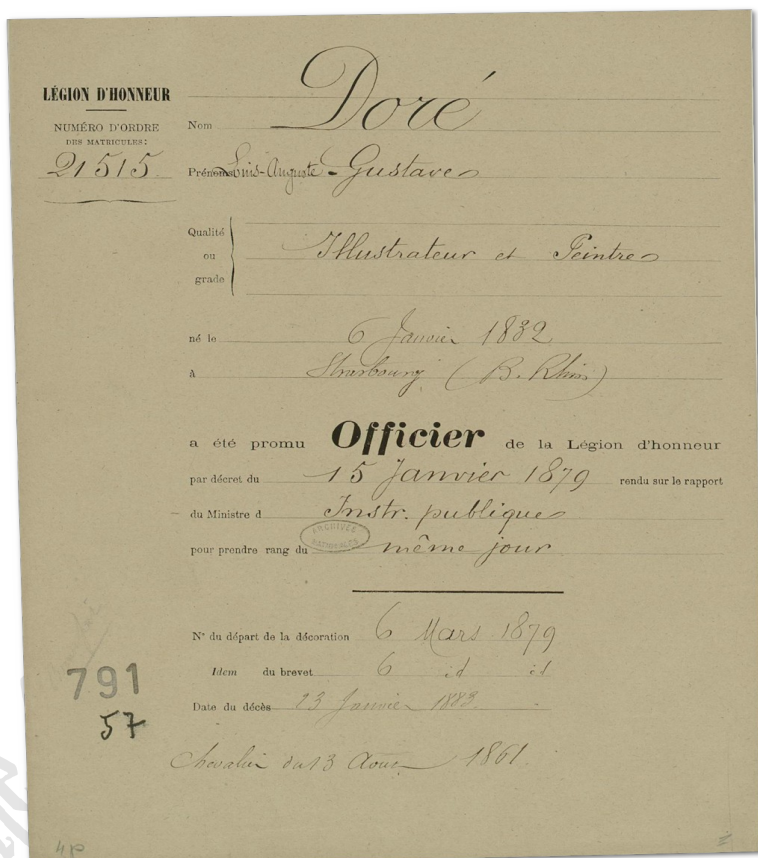 LÉGION D'HONNEUR
NUMÉRO D'ORDRE
DES MATRICULES:
21515
Nom Doré
Prénoms Louis-Auguste-Gustave
Qualité
ou
grade
Illustrateur et Peintre
né le 6 Janvier 1832
A Strasbourg (B. Rhin)
a été promu Officier de la Légion d'honneur
par décret du 15 Janvier 1879 rendu sur le rapport
du Ministre d Instr. publique
pour prendre rang du même jour
ARCHIVES
NATIONALES
N° du départ de la décoration 6 Mars 1879
Idem du brevet 6 id id
Date du décès 23 Janvier 1883
Chevalier du 13 Août 1861
791
57